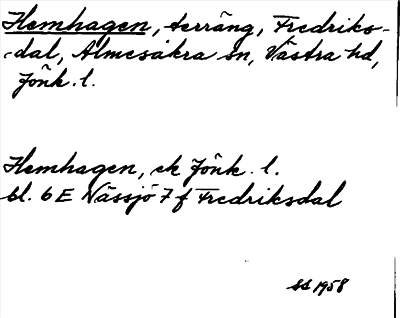 Hemhagen, terräng, Fredriks-
-dal, Almesåkra sn, Västra hd,
Jönk. l.
Hemhagen, ek Jönk. l.
bl. 6E Nässjö 7 f Fredriksdal
SS 1958